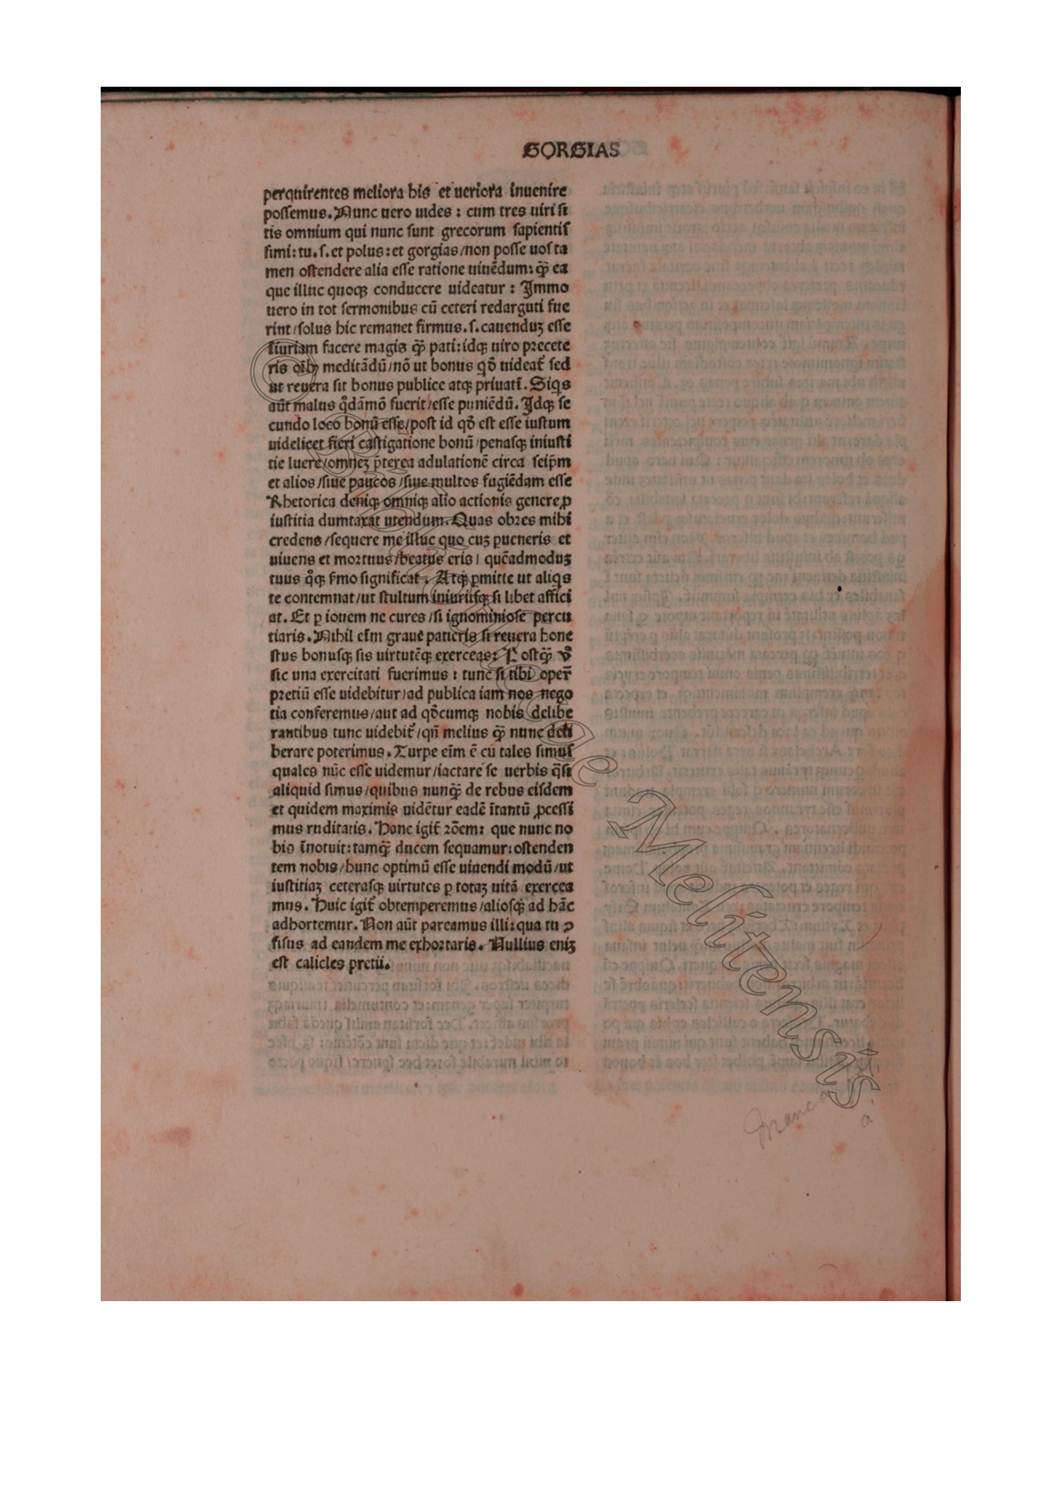 GORGIAS
perquirentes meliora his et ueriora inuenire
possemus. Nunc uero uides : cum tres uiri si
tis omnium qui nunc sunt grecorum sapientis
simi: tu. s. et polus: et gorgias/non posse uos ta
men ostendere alia esse ratione uiuēdum: q̄ꝫ ea
que illuc quoqꝫ conducere uideatur : Immo
uero in tot sermonibus cū ceteri redarguti fue
rint/solus hic remanet firmus. s. cauenduꝫ esse
iiuriam facere magis q̄ꝫ pati: idqꝫ uiro precete
ris oībꝫ meditādū/nō ut bonus qđ uideat̄ sed
ut reuera sit bonus publice atqꝫ priuatī. Siqs
aūt malus q̊dāmō fuerit/esse puniēdū. Idqꝫ se
cundo loco bonū esse/post id qđ est esse iustum
uidelicet fieri castigatione bonū/penasqꝫ iniusti
tie luere/omneꝫ p̄terea adulationē circa seip̄m
et alios/siue paucos/siue multos fugiēdam esse
Rhetorica deniqꝫ omniqꝫ alio actionis genere ꝓ
iustitia dumtaxat utendum. Quas obres mihi
credens/sequere me illuc quo cuꝫ pueneris et
uiuens et mortuus/beatus eris/ quēadmoduꝫ
tuus q̊qꝫ s̄mo significat. Atqꝫ ꝑmitte ut aliqs
te contemnat/ut stultum iniuriisqꝫ si libet affici
at. Et ꝑ iouem ne cures/si ignominiose percu
tiaris. Nihil eīm graue patieris si reuera hone
stus bonusqꝫ sis uirtutēqꝫ exerceas: Postq̄ꝫ v̊
sic una exercitati fuerimus : tunc si tibi oper̄
pretiū esse uidebitur/ad publica iam nos nego
tia conferemus/aut ad qđcumqꝫ nobis delibe
rantibus tunc uidebit̄/qn̄ melius q̄ꝫ nunc deli
berare poterimus. Turpe eīm ē cū tales simus
quales nūc esse uidemur/iactare se uerbis q̄si
aliquid simus/quibus nunq̄ꝫ de rebus eisdem
et quidem maximis uidētur eadē ītantū ꝓcessi
mus ruditatis. Hanc igit̄ rōem: que nunc no
bis īnotuit: tamq̄ꝫ ducem sequamur: ostenden
tem nobis/hunc optimū esse uiuendi modū/ut
iustitiaꝫ ceterasqꝫ uirtutes ꝑ totaꝫ uitā exercea
mus. Huic igit̄ obtemperemus/aliosqꝫ ad hāc
adhortemur. Non aūt pareamus illi: qua tu ꝯ
fisus ad eandem me exhortaris. Nullius eniꝫ
est calicles pretii.
© Bibliothecae Melitensis